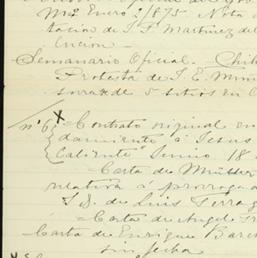 Mz Enero 2/875. Nota
tacion de J. F. Martinez del
Semanario Oficial. Chih
Protesta de J. E. Muñ
de 5 sitios en C
nº 6 X Contrato original en
á Jesus
Caliente Junio 18
Carta de Müller
relativa á prorroga
de Luis Terraz
Carta de Angel Tr
Carta de Enrique
sin fecha